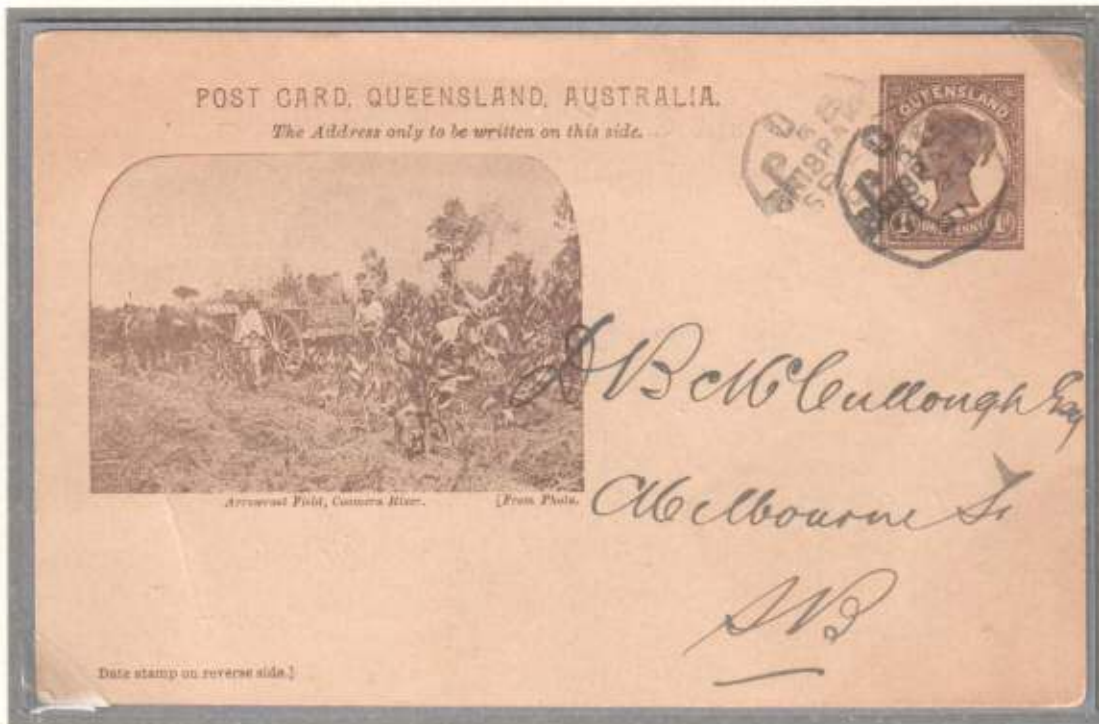 POST CARD, QUEENSLAND, AUSTRALIA.
The Address only to be written on this side.
QUEENSLAND
ONE PENNY
Arrowroot Field, Coomera River. [From Photo.
D B McCullough Esq
Melbourne St
SB
Date stamp on reverse side.]